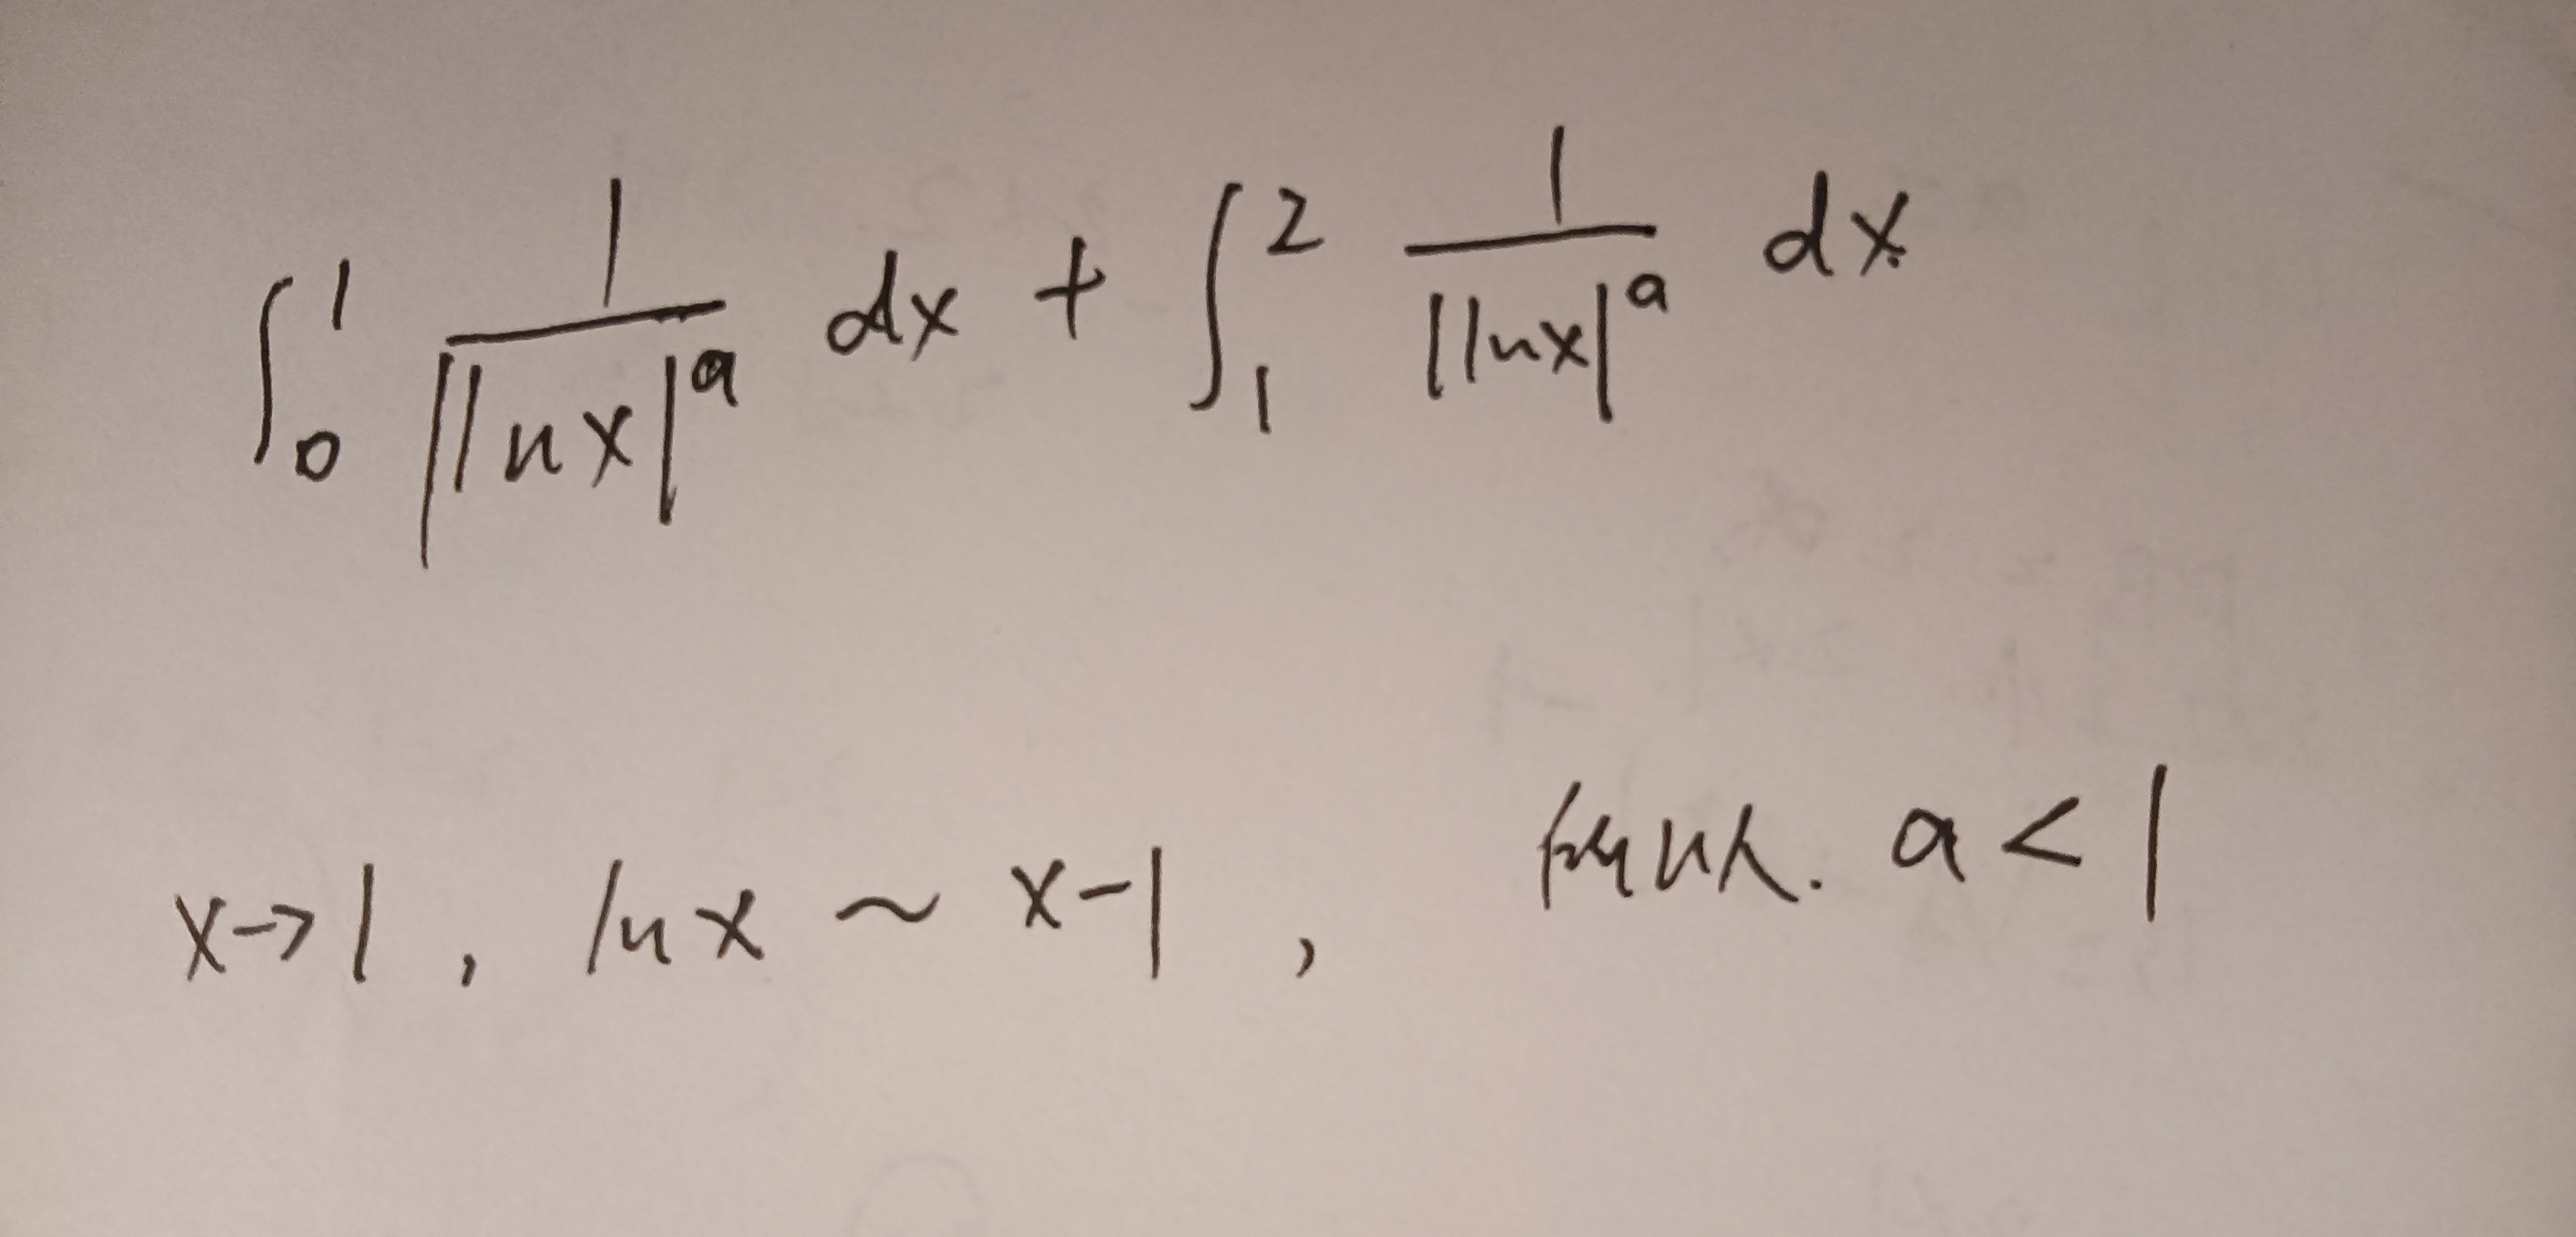 ∫₀¹ 1/|lnx|ᵃ dx + ∫₁² 1/|lnx|ᵃ dx
x→1, lnx ~ x-1, 所以. a<1